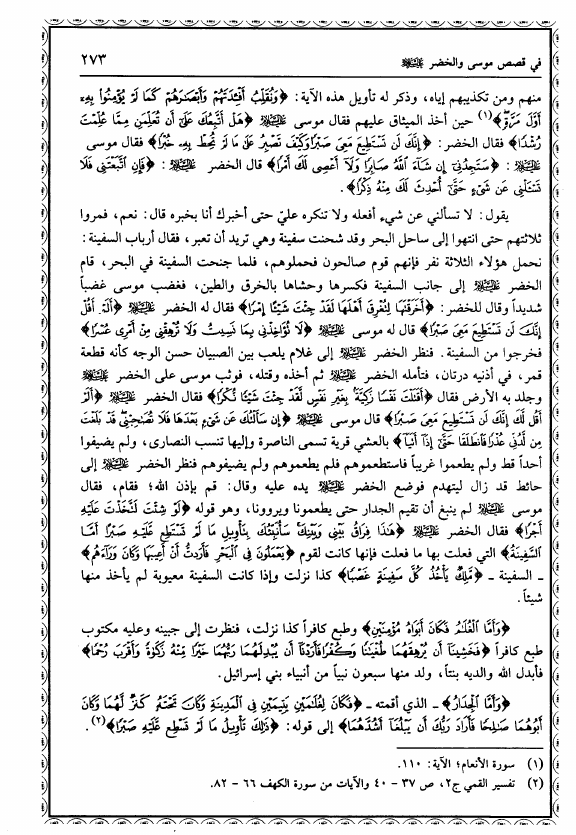 في قصص موسى والخضر عليه السلام ٢٧٣
منهم ومن تكذيبهم إياه، وذكر له تأويل هذه الآية: ﴿وَنُقَلِّبُ أَفْئِدَتَهُمْ وَأَبْصَارَهُمْ كَمَا لَمْ يُؤْمِنُوا بِهِ
أَوَّلَ مَرَّةٍ﴾(١) حين أخذ الميثاق عليهم فقال موسى عليه السلام ﴿هَلْ أَتَّبِعُكَ عَلَى أَن تُعَلِّمَنِ مِمَّا عُلِّمْتَ
رُشْدًا﴾ فقال الخضر: ﴿إِنَّكَ لَن تَسْتَطِيعَ مَعِيَ صَبْرًا وَكَيْفَ تَصْبِرُ عَلَى مَا لَمْ تُحِطْ بِهِ خُبْرًا﴾ فقال موسى
عليه السلام: ﴿سَتَجِدُنِي إِن شَاءَ اللَّهُ صَابِرًا وَلَا أَعْصِي لَكَ أَمْرًا﴾ قال الخضر عليه السلام: ﴿فَإِنِ اتَّبَعْتَنِي فَلَا
تَسْأَلْنِي عَن شَيْءٍ حَتَّى أُحْدِثَ لَكَ مِنْهُ ذِكْرًا﴾.
يقول: لا تسألني عن شيء أفعله ولا تنكره عليّ حتى أخبرك أنا بخبره قال: نعم، فمروا
ثلاثتهم حتى انتهوا إلى ساحل البحر وقد شحنت سفينة وهي تريد أن تعبر، فقال أرباب السفينة:
نحمل هؤلاء الثلاثة نفر فإنهم قوم صالحون فحملوهم، فلما جنحت السفينة في البحر، قام
الخضر عليه السلام إلى جانب السفينة فكسرها وحشاها بالخرق والطين، فغضب موسى غضباً
شديداً وقال للخضر: ﴿أَخَرَقْتَهَا لِتُغْرِقَ أَهْلَهَا لَقَدْ جِئْتَ شَيْئًا إِمْرًا﴾ فقال له الخضر عليه السلام ﴿أَلَمْ أَقُلْ
إِنَّكَ لَن تَسْتَطِيعَ مَعِيَ صَبْرًا﴾ قال له موسى عليه السلام ﴿لَا تُؤَاخِذْنِي بِمَا نَسِيتُ وَلَا تُرْهِقْنِي مِنْ أَمْرِي عُسْرًا﴾
فخرجوا من السفينة. فنظر الخضر عليه السلام إلى غلام يلعب بين الصبيان حسن الوجه كأنه قطعة
قمر، في أذنيه درتان، فتأمله الخضر عليه السلام ثم أخذه وقتله، فوثب موسى على الخضر عليه السلام
وجلد به الأرض فقال ﴿أَقَتَلْتَ نَفْسًا زَكِيَّةً بِغَيْرِ نَفْسٍ لَّقَدْ جِئْتَ شَيْئًا نُّكْرًا﴾ فقال الخضر عليه السلام ﴿أَلَمْ
أَقُل لَّكَ إِنَّكَ لَن تَسْتَطِيعَ مَعِيَ صَبْرًا﴾ قال موسى عليه السلام ﴿إِن سَأَلْتُكَ عَن شَيْءٍ بَعْدَهَا فَلَا تُصَاحِبْنِي قَدْ بَلَغْتَ
مِن لَّدُنِّي عُذْرًا فَانطَلَقَا حَتَّى إِذَا أَتَيَا﴾ بالعشي قرية تسمى الناصرة وإليها تنسب النصارى، ولم يضيفوا
أحداً قط ولم يطعموا غريباً فاستطعموهم فلم يطعموهم ولم يضيفوهم فنظر الخضر عليه السلام إلى
حائط قد زال ليتهدم فوضع الخضر عليه السلام يده عليه وقال: قم بإذن الله؛ فقام، فقال
موسى عليه السلام لم ينبغ أن تقيم الجدار حتى يطعمونا ويروونا، وهو قوله ﴿لَوْ شِئْتَ لَتَّخَذْتَ عَلَيْهِ
أَجْرًا﴾ فقال الخضر عليه السلام ﴿هَذَا فِرَاقُ بَيْنِي وَبَيْنِكَ سَأُنَبِّئُكَ بِتَأْوِيلِ مَا لَمْ تَسْتَطِع عَّلَيْهِ صَبْرًا أَمَّا
السَّفِينَةُ﴾ التي فعلت بها ما فعلت فإنها كانت لقوم ﴿يَعْمَلُونَ فِي الْبَحْرِ فَأَرَدتُّ أَنْ أَعِيبَهَا وَكَانَ وَرَاءَهُم﴾
ـ السفينة ـ ﴿مَّلِكٌ يَأْخُذُ كُلَّ سَفِينَةٍ غَصْبًا﴾ كذا نزلت وإذا كانت السفينة معيوبة لم يأخذ منها
شيئاً.
﴿وَأَمَّا الْغُلَامُ فَكَانَ أَبَوَاهُ مُؤْمِنَيْنِ﴾ وطبع كافراً كذا نزلت، فنظرت إلى جبينه وعليه مكتوب
طبع كافراً ﴿فَخَشِينَا أَن يُرْهِقَهُمَا طُغْيَانًا وَكُفْرًا فَأَرَدْنَا أَن يُبْدِلَهُمَا رَبُّهُمَا خَيْرًا مِّنْهُ زَكَاةً وَأَقْرَبَ رُحْمًا﴾
فأبدل الله والديه بنتاً، ولد منها سبعون نبياً من أنبياء بني إسرائيل.
﴿وَأَمَّا الْجِدَارُ﴾ ـ الذي أقمته ـ ﴿فَكَانَ لِغُلَامَيْنِ يَتِيمَيْنِ فِي الْمَدِينَةِ وَكَانَ تَحْتَهُ كَنزٌ لَّهُمَا وَكَانَ
أَبُوهُمَا صَالِحًا فَأَرَادَ رَبُّكَ أَن يَبْلُغَا أَشُدَّهُمَا﴾ إلى قوله: ﴿ذَلِكَ تَأْوِيلُ مَا لَمْ تَسْطِع عَّلَيْهِ صَبْرًا﴾(٢).
(١) سورة الأنعام؛ الآية: ١١٠.
(٢) تفسير القمي ج٢، ص ٣٧ - ٤٠ والآيات من سورة الكهف ٦٦ - ٨٢.